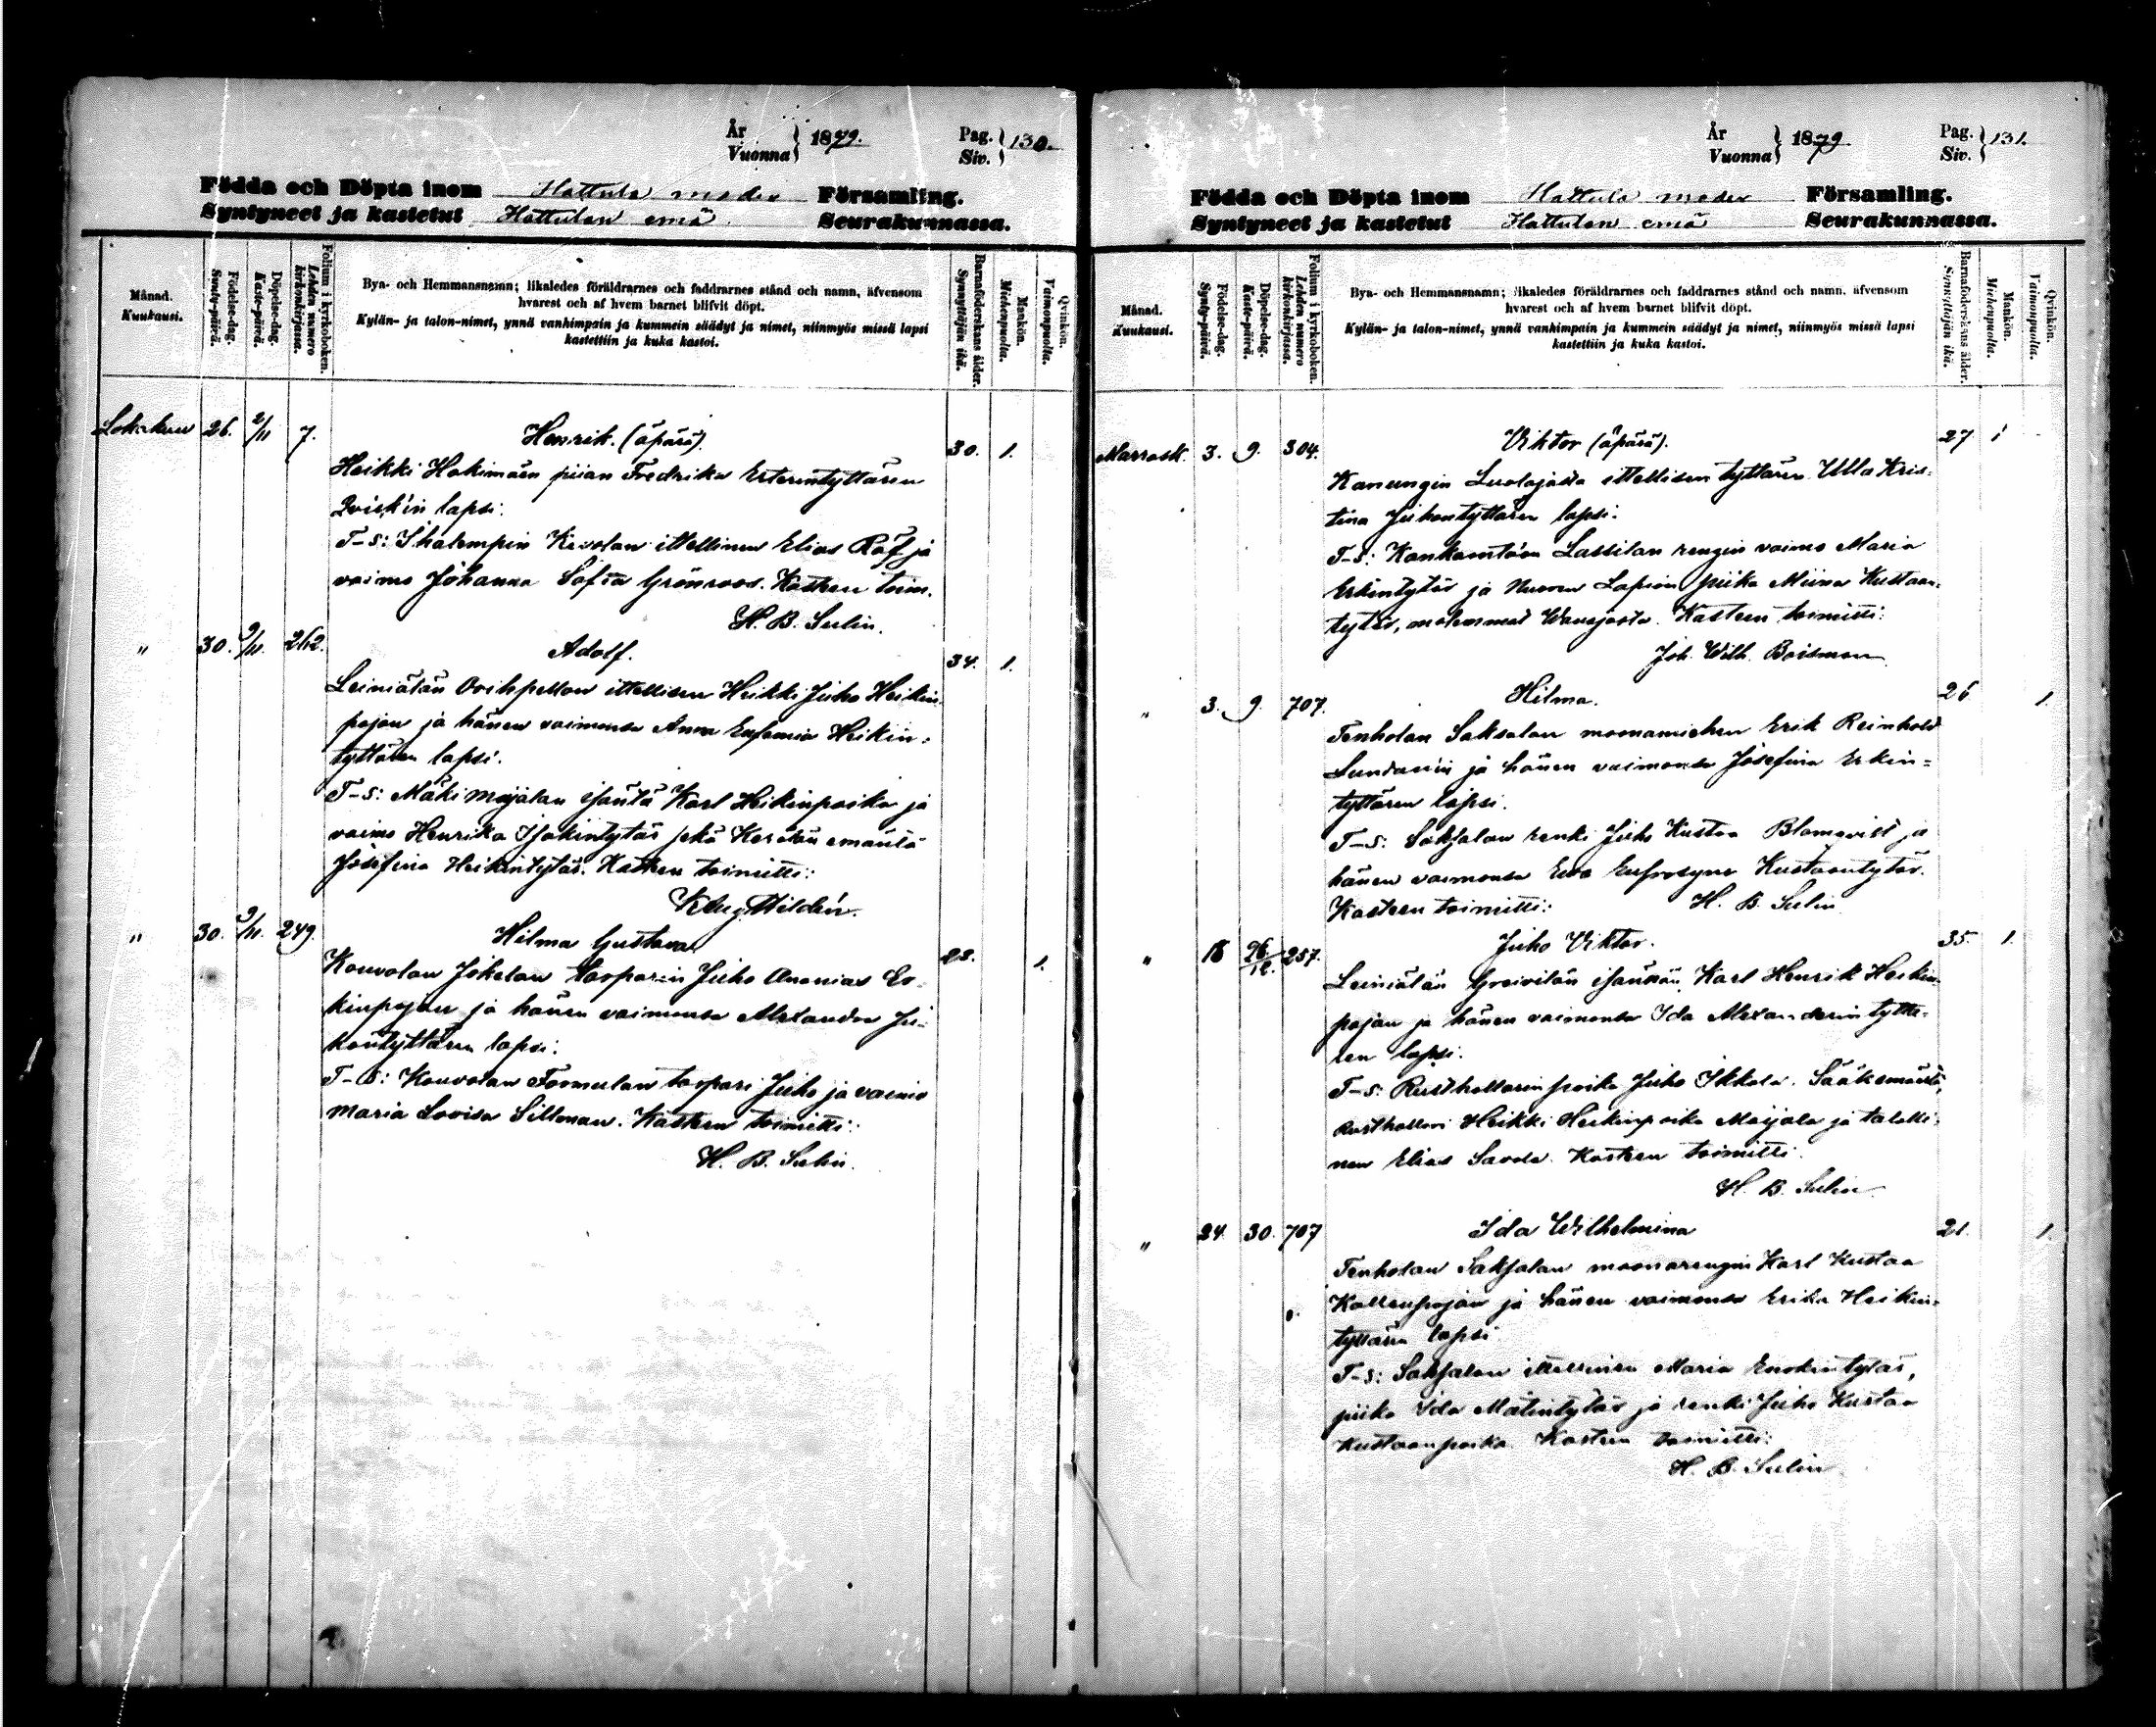 År
Vuonna } 1879.
Pag.
Siv. } 130.
Födda och Döpta inom Hattula moder Församling.
Syntyneet ja kastetut Hattulan emä Seurakunnassa.
Månad.
Kuukausi.
Födelse-dag.
Synty-päivä.
Döpelse-dag.
Kaste-päivä.
Folium i kyrkoboken.
Lehden numero
kirkonkirjassa.
Bya- och Hemmansnamn; likaledes föräldrarnes och faddrarnes stånd och namn, äfvensom
hvarest och af hvem barnet blifvit döpt.
Kylän- ja talon-nimet, ynnä vanhimpain ja kummein säädyt ja nimet, niinmyös missä lapsi
kastettiin ja kuka kastoi.
Barnaföderskans ålder.
Synnyttäjän ikä.
Mankön.
Miehenpuolta.
Qvinkön.
Vaimonpuolta.
Lokakuu 26. 2/11 7. Henrik. (äpärä). 30. 1.
Heikki Hakimäen piian Fredrika
lapsi.
T-s: Ihalempin Kivolan ittellinen Elias Räf ja
vaimo Johanna Sofia Grönroos. Kasteen toim.
H. B. Sulin.
" 30. 9/11. 262. Adolf. 34. 1.
Leiniälän ittellisen Heikki Juho Heikin-
pojan ja hänen vaimonsa Anna Eufemia Heikin-
tyttären lapsi.
T-s: Mäki Maijalan isäntä Karl Heikinpoika ja
vaimo Henrika Isakintytär sekä emäntä
Josefina Heikintytär. Kasteen toimitti:
K. Aug. Hildén.
" 30. 9/11. 249. Hilma Gustava 23. 1.
Kouvolan Jokelan torparin Juho Ananias Er-
kinpojan ja hänen vaimonsa Alexandra Ju-
hontyttären lapsi.
T-s: Kouvolan torpari Juho ja vaimo
Maria Lovisa Sillman. Kasteen toimitti:
H. B. Sulin.
År
Vuonna } 1879
Pag.
Siv. } 131.
Födda och Döpta inom Hattula moder Församling.
Syntyneet ja kastetut Hattulan emä Seurakunnassa.
Månad.
Kuukausi.
Födelse-dag.
Synty-päivä.
Döpelse-dag.
Kaste-päivä.
Folium i kyrkoboken.
Lehden numero
kirkonkirjassa.
Bya- och Hemmansnamn; likaledes föräldrarnes och faddrarnes stånd och namn, äfvensom
hvarest och af hvem barnet blifvit döpt.
Kylän- ja talon-nimet, ynnä vanhimpain ja kummein säädyt ja nimet, niinmyös missä lapsi
kastettiin ja kuka kastoi.
Barnaföderskans ålder.
Synnyttäjän ikä.
Mankön.
Miehenpuolta.
Qvinkön.
Vaimonpuolta.
Marrask. 3. 9. 304. Viktor (äpärä). 27 1
Kanungin Luolajasta ittellisen tyttären Ulla Kris-
tina Juhontyttären lapsi.
T-s: Kankaantaan Lassilan rengin vaimo Maria
Erkintytär ja piika Miina Kustaan-
tytär, molemmat Wanajasta. Kasteen toimitti:
Joh. Wilh. Boisman
" 3. 9. 707. Hilma. 26 1.
Tenholan Saksalan moonamiehen Erik Reinhold
Lundanin ja hänen vaimonsa Josefina Erkin-
tyttären lapsi.
T-s: Saksalan renki Juho Kustaa Blomqvist ja
hänen vaimonsa Eva Eufrosyne Kustaantytär.
Kasteen toimitti: H. B. Sulin
" 18 26/12. 257. Juho Viktor. 35. 1.
Leiniälän isännän Karl Henrik Heikin-
pojan ja hänen vaimonsa Ida Alexanderin tyttä-
ren lapsi.
T-s: Rusthollarin poika Juho Ikkala. Sääksmäestä,
Rusthollari Heikki Heikinpoika Maijala ja talolli-
nen Elias Savola. Kasteen toimitti
H. B. Sulin
" 24. 30. 707 Ida Wilhelmina 21. 1.
Tenholan Saksalan moonarengin Karl Kustaa
Kallenpojan ja hänen vaimonsa Erika Heikin-
tyttären lapsi
T-s: Saksalan ittellinen Maria Enokintytär,
piika Ida Matintytär ja renki Juho Kustaa
Kustaanpoika. Kasteen toimitti:
H. B. Sulin